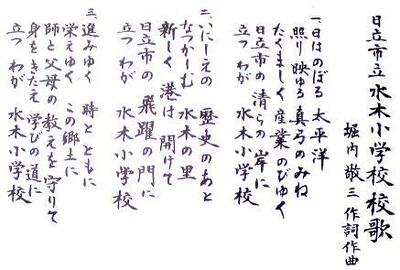 日立市立水木小学校校歌
堀内敬三 作詞作曲
一、日はのぼる 太平洋
照り映ゆる 真弓のみね
たくましく 産業のびゆく
日立市の 清らの岸に
立つ わが 水木小学校
二、いにしえの 歴史のあと
なつかーむ 水木の里
新しく 港は 開けて
日立市の 飛躍の門に
立つ わが 水木小学校
三、進みゆく 時とともに
栄えゆく この郷土に
師と父母の 教えを守りて
身をきたえ 学びの道に
立つ わが 水木小学校